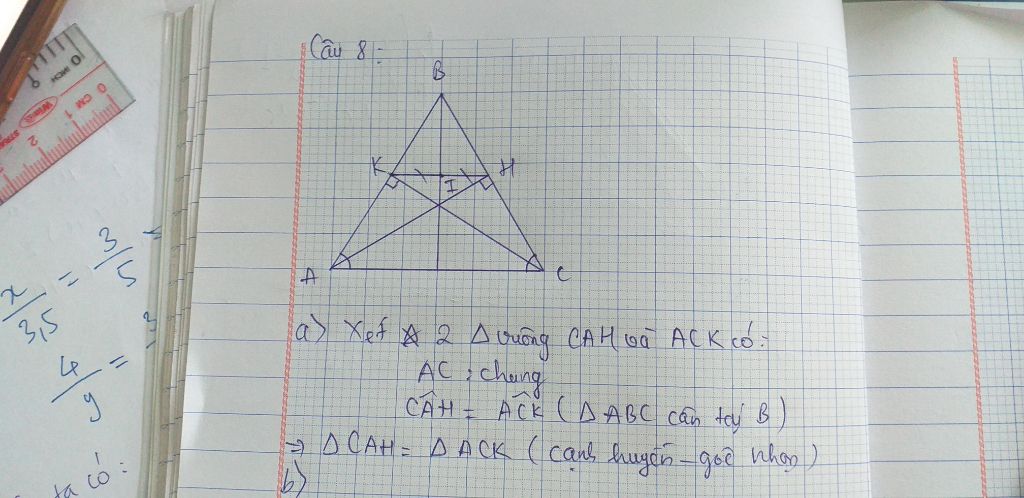 Câu 8:
B
K
H
I
A
C
a) Xét 2 Δ vuông CAH và ACK có:
AC: chung
CÂH = AĈK (ΔABC cân tại B)
⇒ ΔCAH = ΔACK (cạnh huyền - góc nhọn)
b)
x/3,5 = 3/5 =
4/y =
ta có:
0 CM 1 2
10 INCH